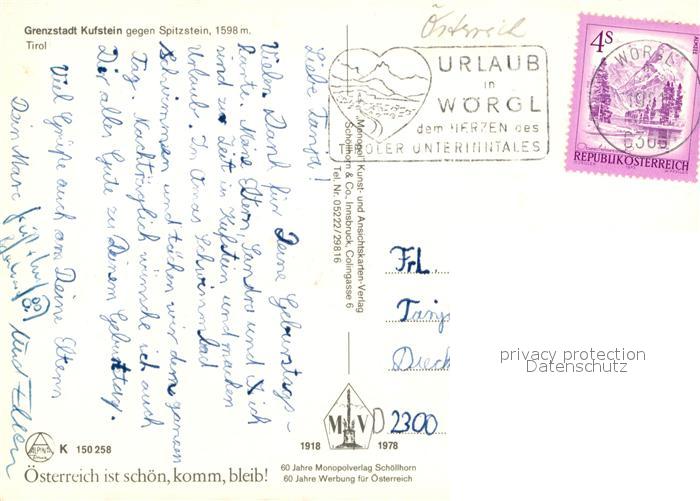 Grenzstadt Kufstein gegen Spitzstein, 1598 m.
Tirol
Liebe Tanja!
Vielen Dank für Deine Geburtstags-
karte. Meine Eltern, Sandra und ich
sind zur Zeit in Kufstein und machen
Urlaub. In Omas Schwimmbad
schwimmen und tauchen wir den ganzen
Tag. Nachträglich wünsche ich auch
Dir alles Gute zu Deinem Geburtstag.
Viel Grüße auch an Deine Eltern
Dein Marc
und Eltern
"Monopol" Kunst- und Ansichtskarten-Verlag
Schöllhorn & Co., Innsbruck, Colingasse 6
Tel. Nr. 05222/29816
Österreich
URLAUB
in
WÖRGL
dem HERZEN des
TIROLER UNTERINNTALES
4S
WÖRGL
6300
REPUBLIK ÖSTERREICH
Frl.
Tanj
Dieck
D 2300
privacy protection
Datenschutz
ALPINA
K 150 258
MV
1918 1978
Österreich ist schön, komm, bleib!
60 Jahre Monopolverlag Schöllhorn
60 Jahre Werbung für Österreich